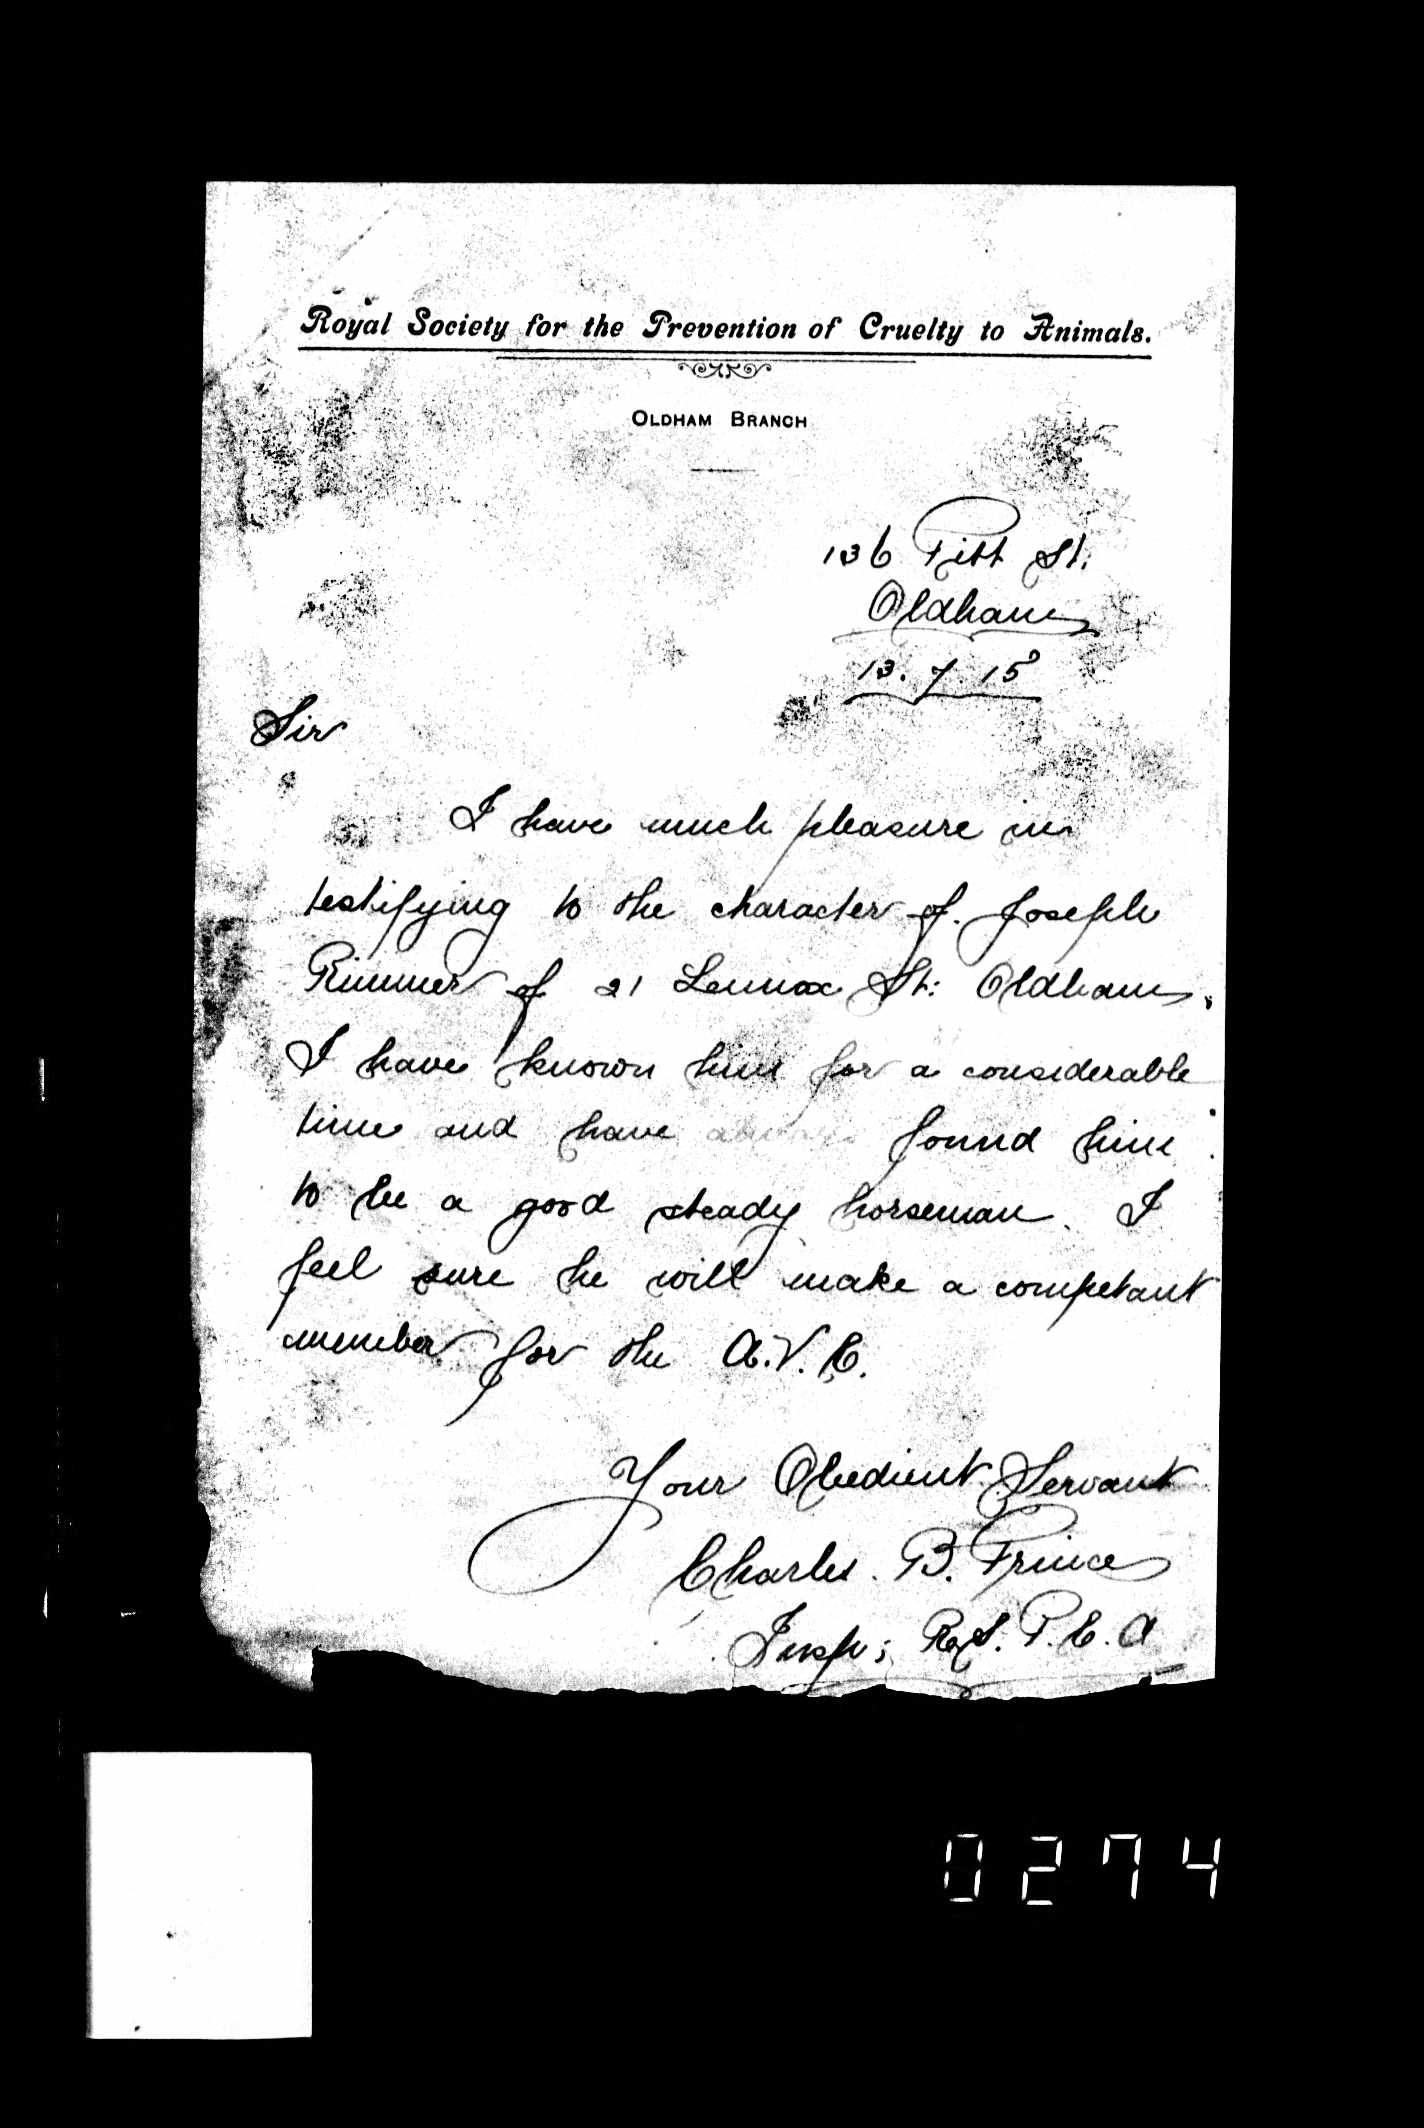 Royal Society for the Prevention of Cruelty to Animals.
OLDHAM BRANCH
136 Pitt St.
Oldham
13. 7. 15
Sir
I have much pleasure in
testifying to the character of. Joseph
Rimmer of 21 Lennox St: Oldham.
I have known him for a considerable
time and have always found him
to be a good steady horseman. I
feel sure he will make a competant
member for the A.V.C.
Your Obedient Servant
Charles. B. Prince
Insp; R.S.P.C.A
0274